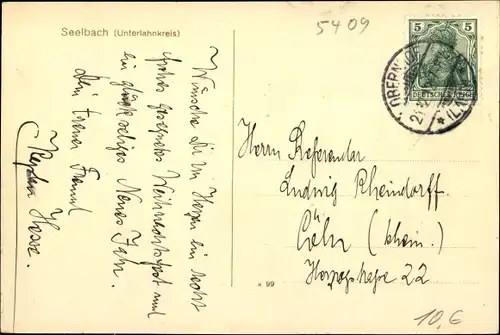 Seelbach (Unterlahnkreis)
5409
5
5
DEUTSCHES REICH
Wünsche dir im Herzen ein recht
frohes gesegnetes Weihnachtsfest und
ein glückseliges Neues Jahr.
Dein treuer Freund
Herrn Referendar
Ludwig Rheindorff
Cöln (Rhein.)
Herzogstraße 22
99
10,6